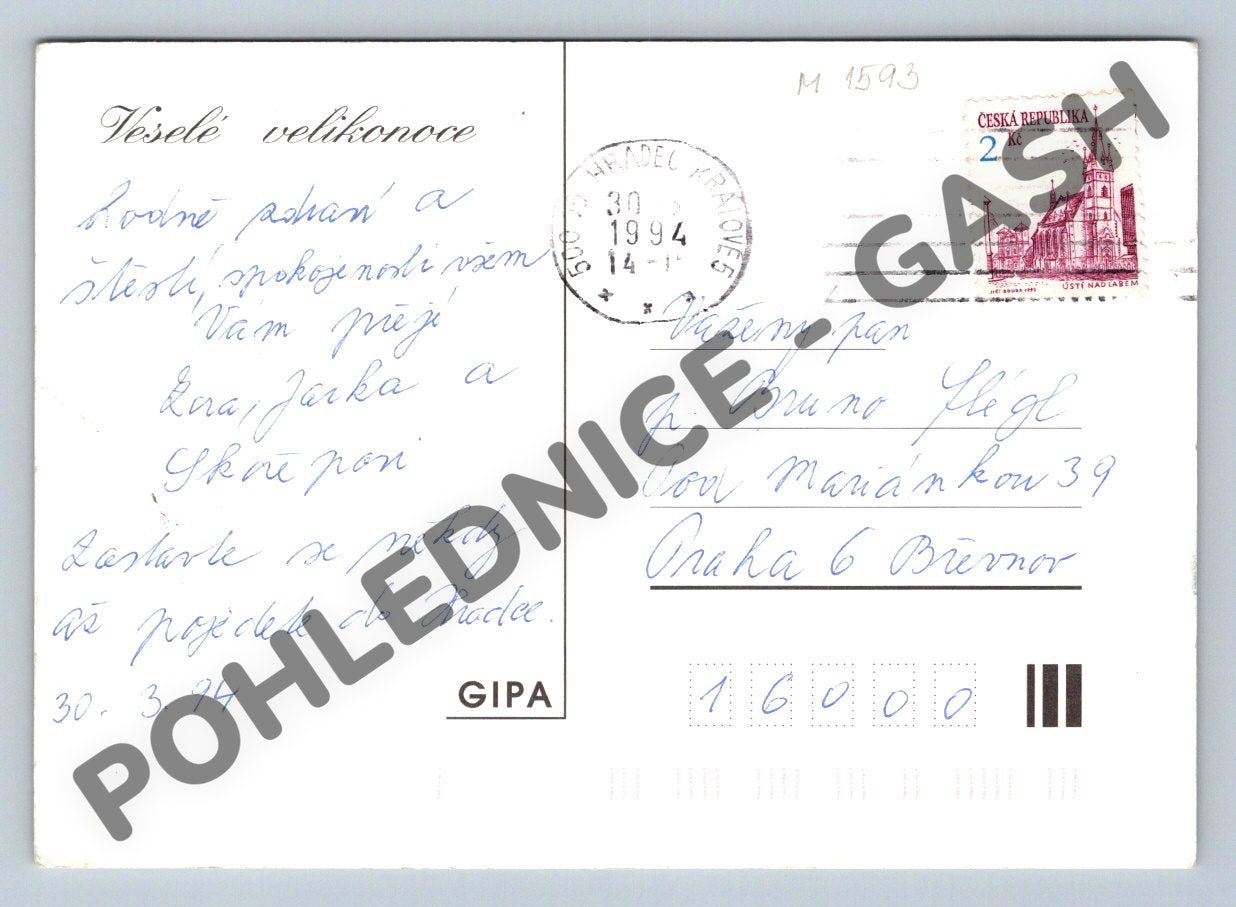 M 1593
Veselé velikonoce
ČESKÁ REPUBLIKA
2 Kč
JIŘÍ BOUDA 1993
ÚSTÍ NAD LABEM
HRADEC KRÁLOVÉ 5
30
1994
14
hodně zdraví a
štěstí, spokojenosti všem
Vám přejí
Zora, Jarka a
Skořepovi
Zastavte se někdy
až pojedete do Hradce.
30. 3. 94
GIPA
Vážený pan
p. Bruno Flégl
Pod Mariánkou 39
Praha 6 Břevnov
16000
POHLEDNICE - GASH